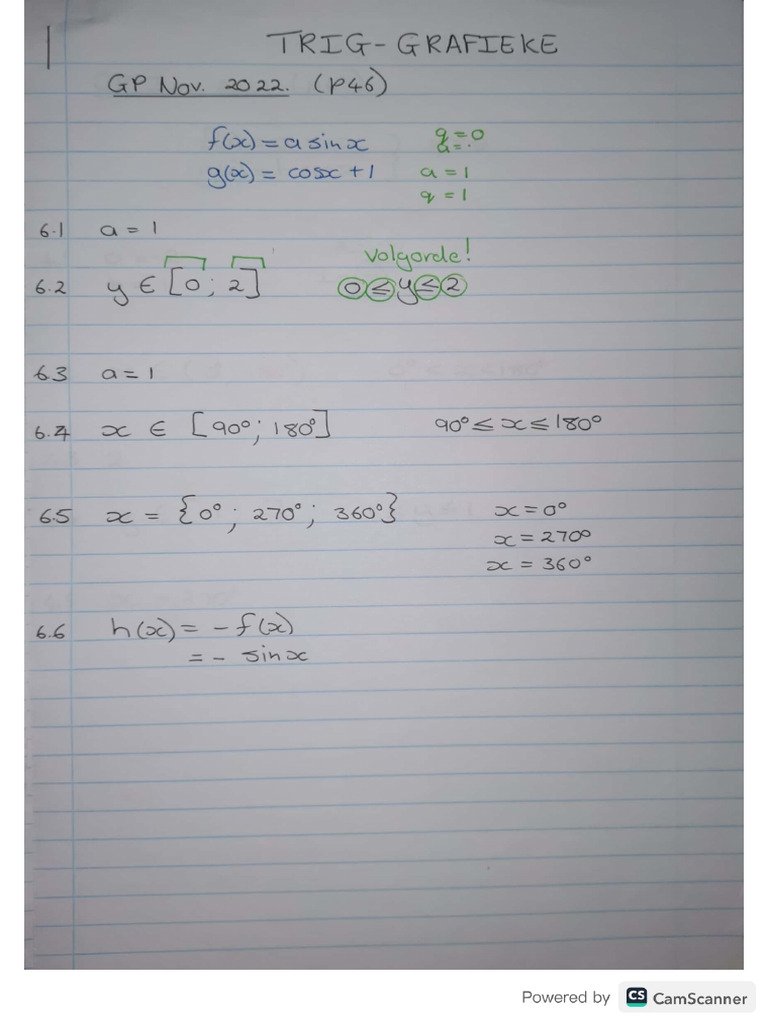 1
TRIG-GRAFIEKE
GP Nov. 2022. (p46)
f(x) = a sinx
q = 0
a = .
g(x) = cosx + 1
a = 1
q = 1
6.1 a = 1
Volgorde!
6.2 y ∈ [0; 2] 0 ≤ y ≤ 2
6.3 a = 1
6.4 x ∈ [90°; 180°] 90° ≤ x ≤ 180°
6.5 x = {0°; 270°; 360°} x = 0°
x = 270°
x = 360°
6.6 h(x) = - f(x)
= - sinx
Powered by CS CamScanner